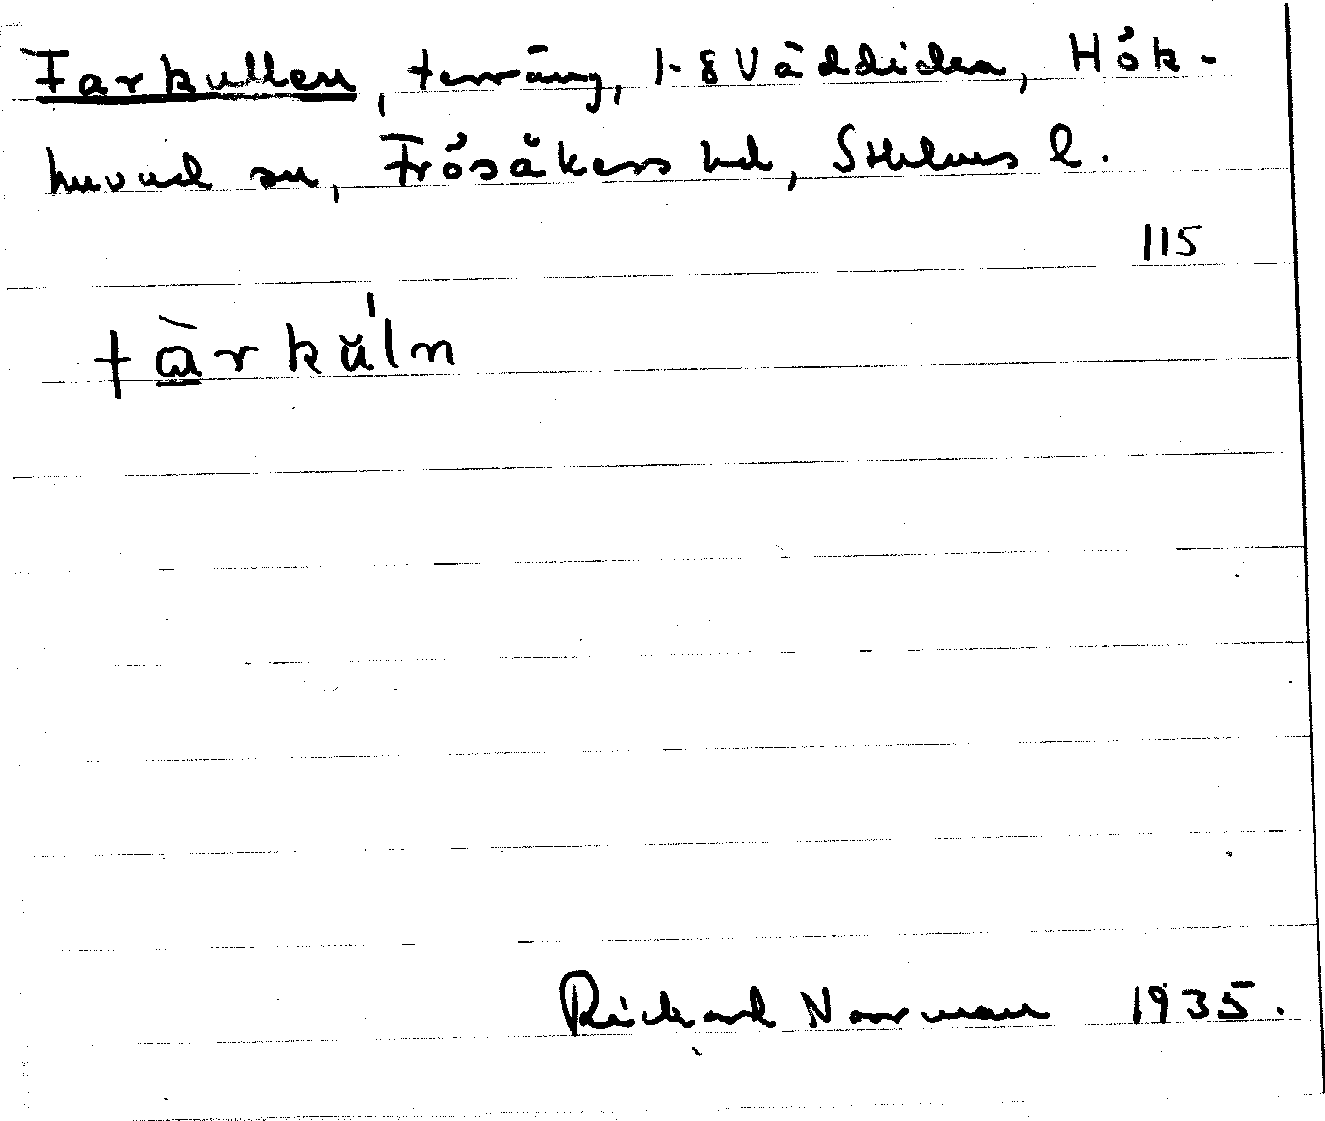 Farkullen, terräng, 1-8 Väddika, Hök-
huvud sn, Frösåkers hd, Sthlms l.
115
fàrkŭ'ln
Rickard Norrman 1935.